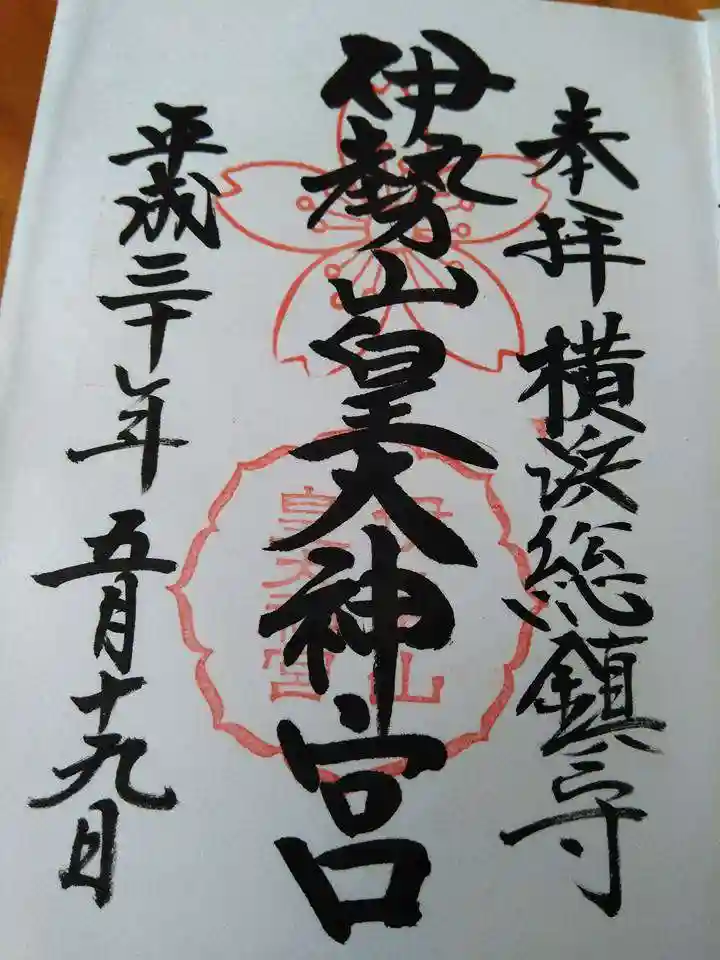 奉拝 横浜総鎮守
伊勢山皇大神宮
平成三十年五月十九日
伊勢山
皇大神宮